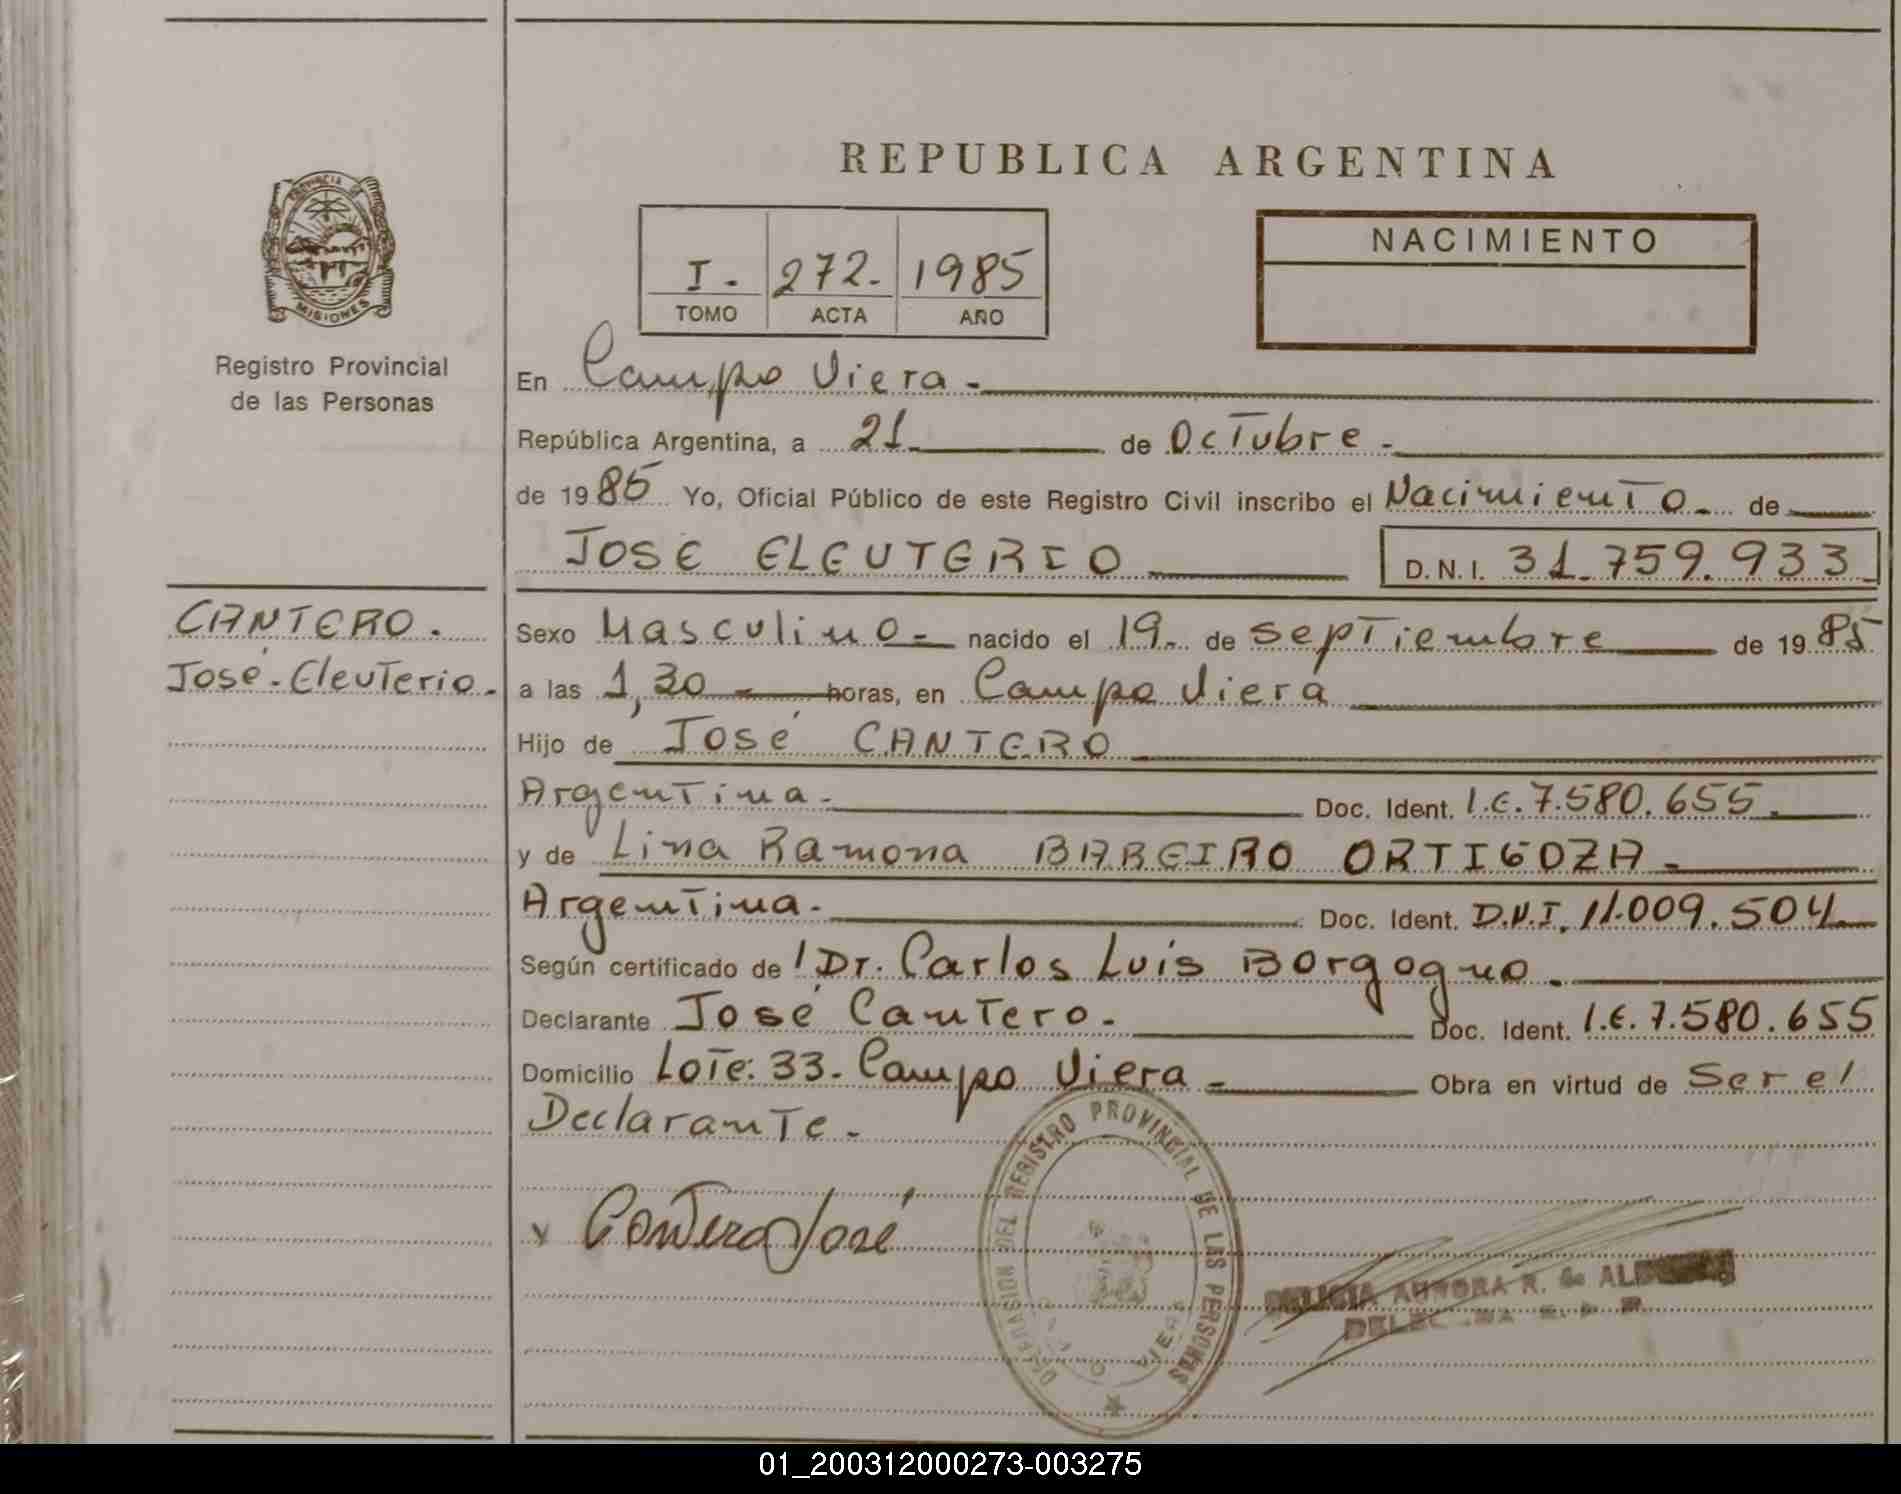 REPUBLICA ARGENTINA
PROVINCIA DE
MISIONES
Registro Provincial
de las Personas
I. 272. 1985
TOMO ACTA AÑO
NACIMIENTO
En Campo Viera.
República Argentina, a 21 de Octubre.
de 1985 Yo, Oficial Público de este Registro Civil inscribo el Nacimiento de
JOSE ELEUTERIO D.N.I. 31.759.933
CANTERO.
José Eleuterio.
Sexo Masculino nacido el 19. de septiembre de 1985
a las 1,30 horas, en Campo Viera
Hijo de José CANTERO
Argentina. Doc. Ident. I.E. 7.580.655.
y de Lina Ramona BAREIRO ORTIGOZA
Argentina. Doc. Ident. D.N.I. 11.009.504
Según certificado de Dr. Carlos Luis Borgogno.
Declarante José Cantero. Doc. Ident. I.E. 7.580.655
Domicilio Lote: 33. Campo Viera Obra en virtud de Ser el
Declarante.
x Cantero José
DEL REGISTRO PROVINCIAL DE LAS PERSONAS
AURORA R. de
01_200312000273-003275